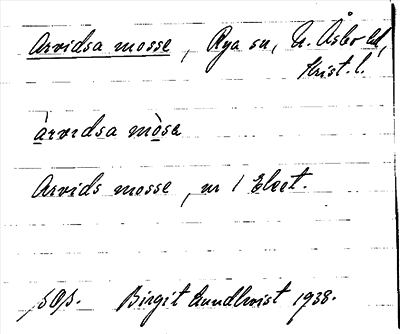 Arvidsa mosse, Rya sn, N. Åsbo hd,
Krist. l.
àrvidsa mòsa
Arvids mosse, nr 1 Ekeet.
sOs. Birgit Lundkvist 1938.